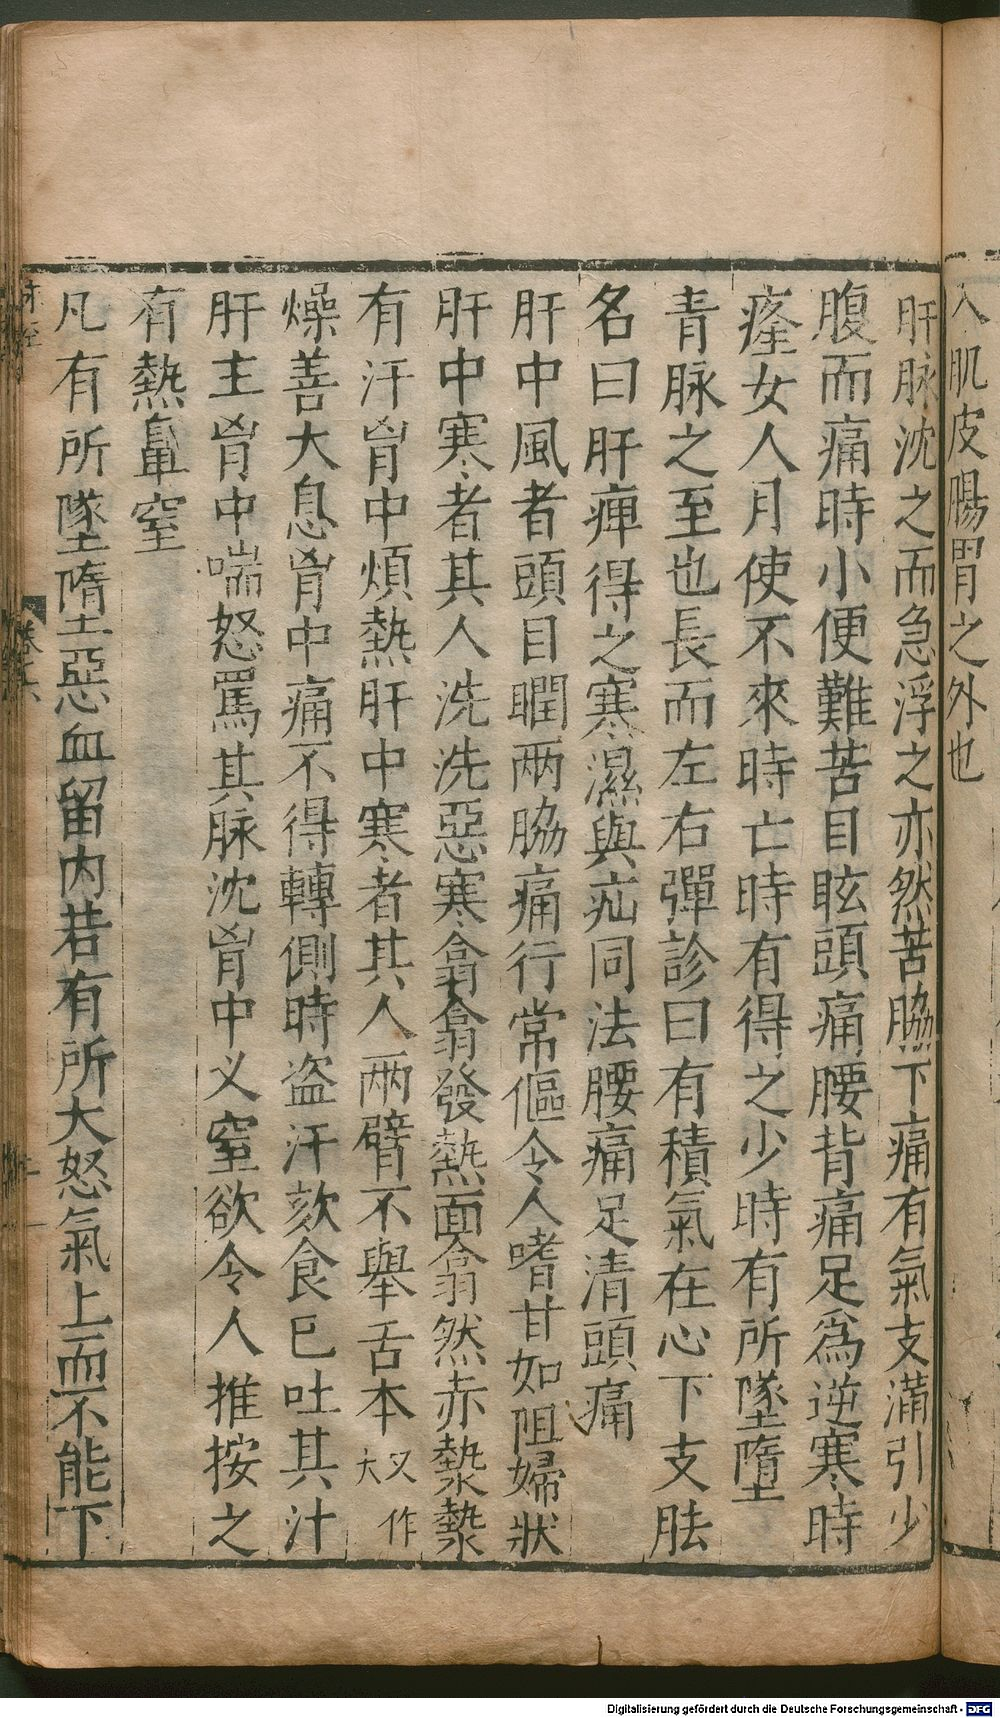 入肌皮腸胃之外也
肝脉沈之而急浮之亦然苦脇下痛有氣支滿引少
腹而痛時小便難苦目眩頭痛腰背痛足爲逆寒時
癃女人月使不來時亡時有得之少時有所墜墮
青脉之至也長而左右彈診曰有積氣在心下支胠
名曰肝痺得之寒濕與疝同法腰痛足清頭痛
肝中風者頭目瞤兩脇痛行常傴令人嗜甘如阻婦狀
肝中寒者其人洗洗惡寒翕翕發熱面翕然赤漐漐
有汗胷中煩熱肝中寒者其人兩臂不舉舌本又作大
燥善大息胷中痛不得轉側時盗汗欬食已吐其汁
肝主胷中喘怒罵其脉沈胷中又窒欲令人推按之
有熱鼻窒
凡有所墜墮惡血留内若有所大怒氣上而不能下
卷六
Digitalisierung gefördert durch die Deutsche Forschungsgemeinschaft - DFG